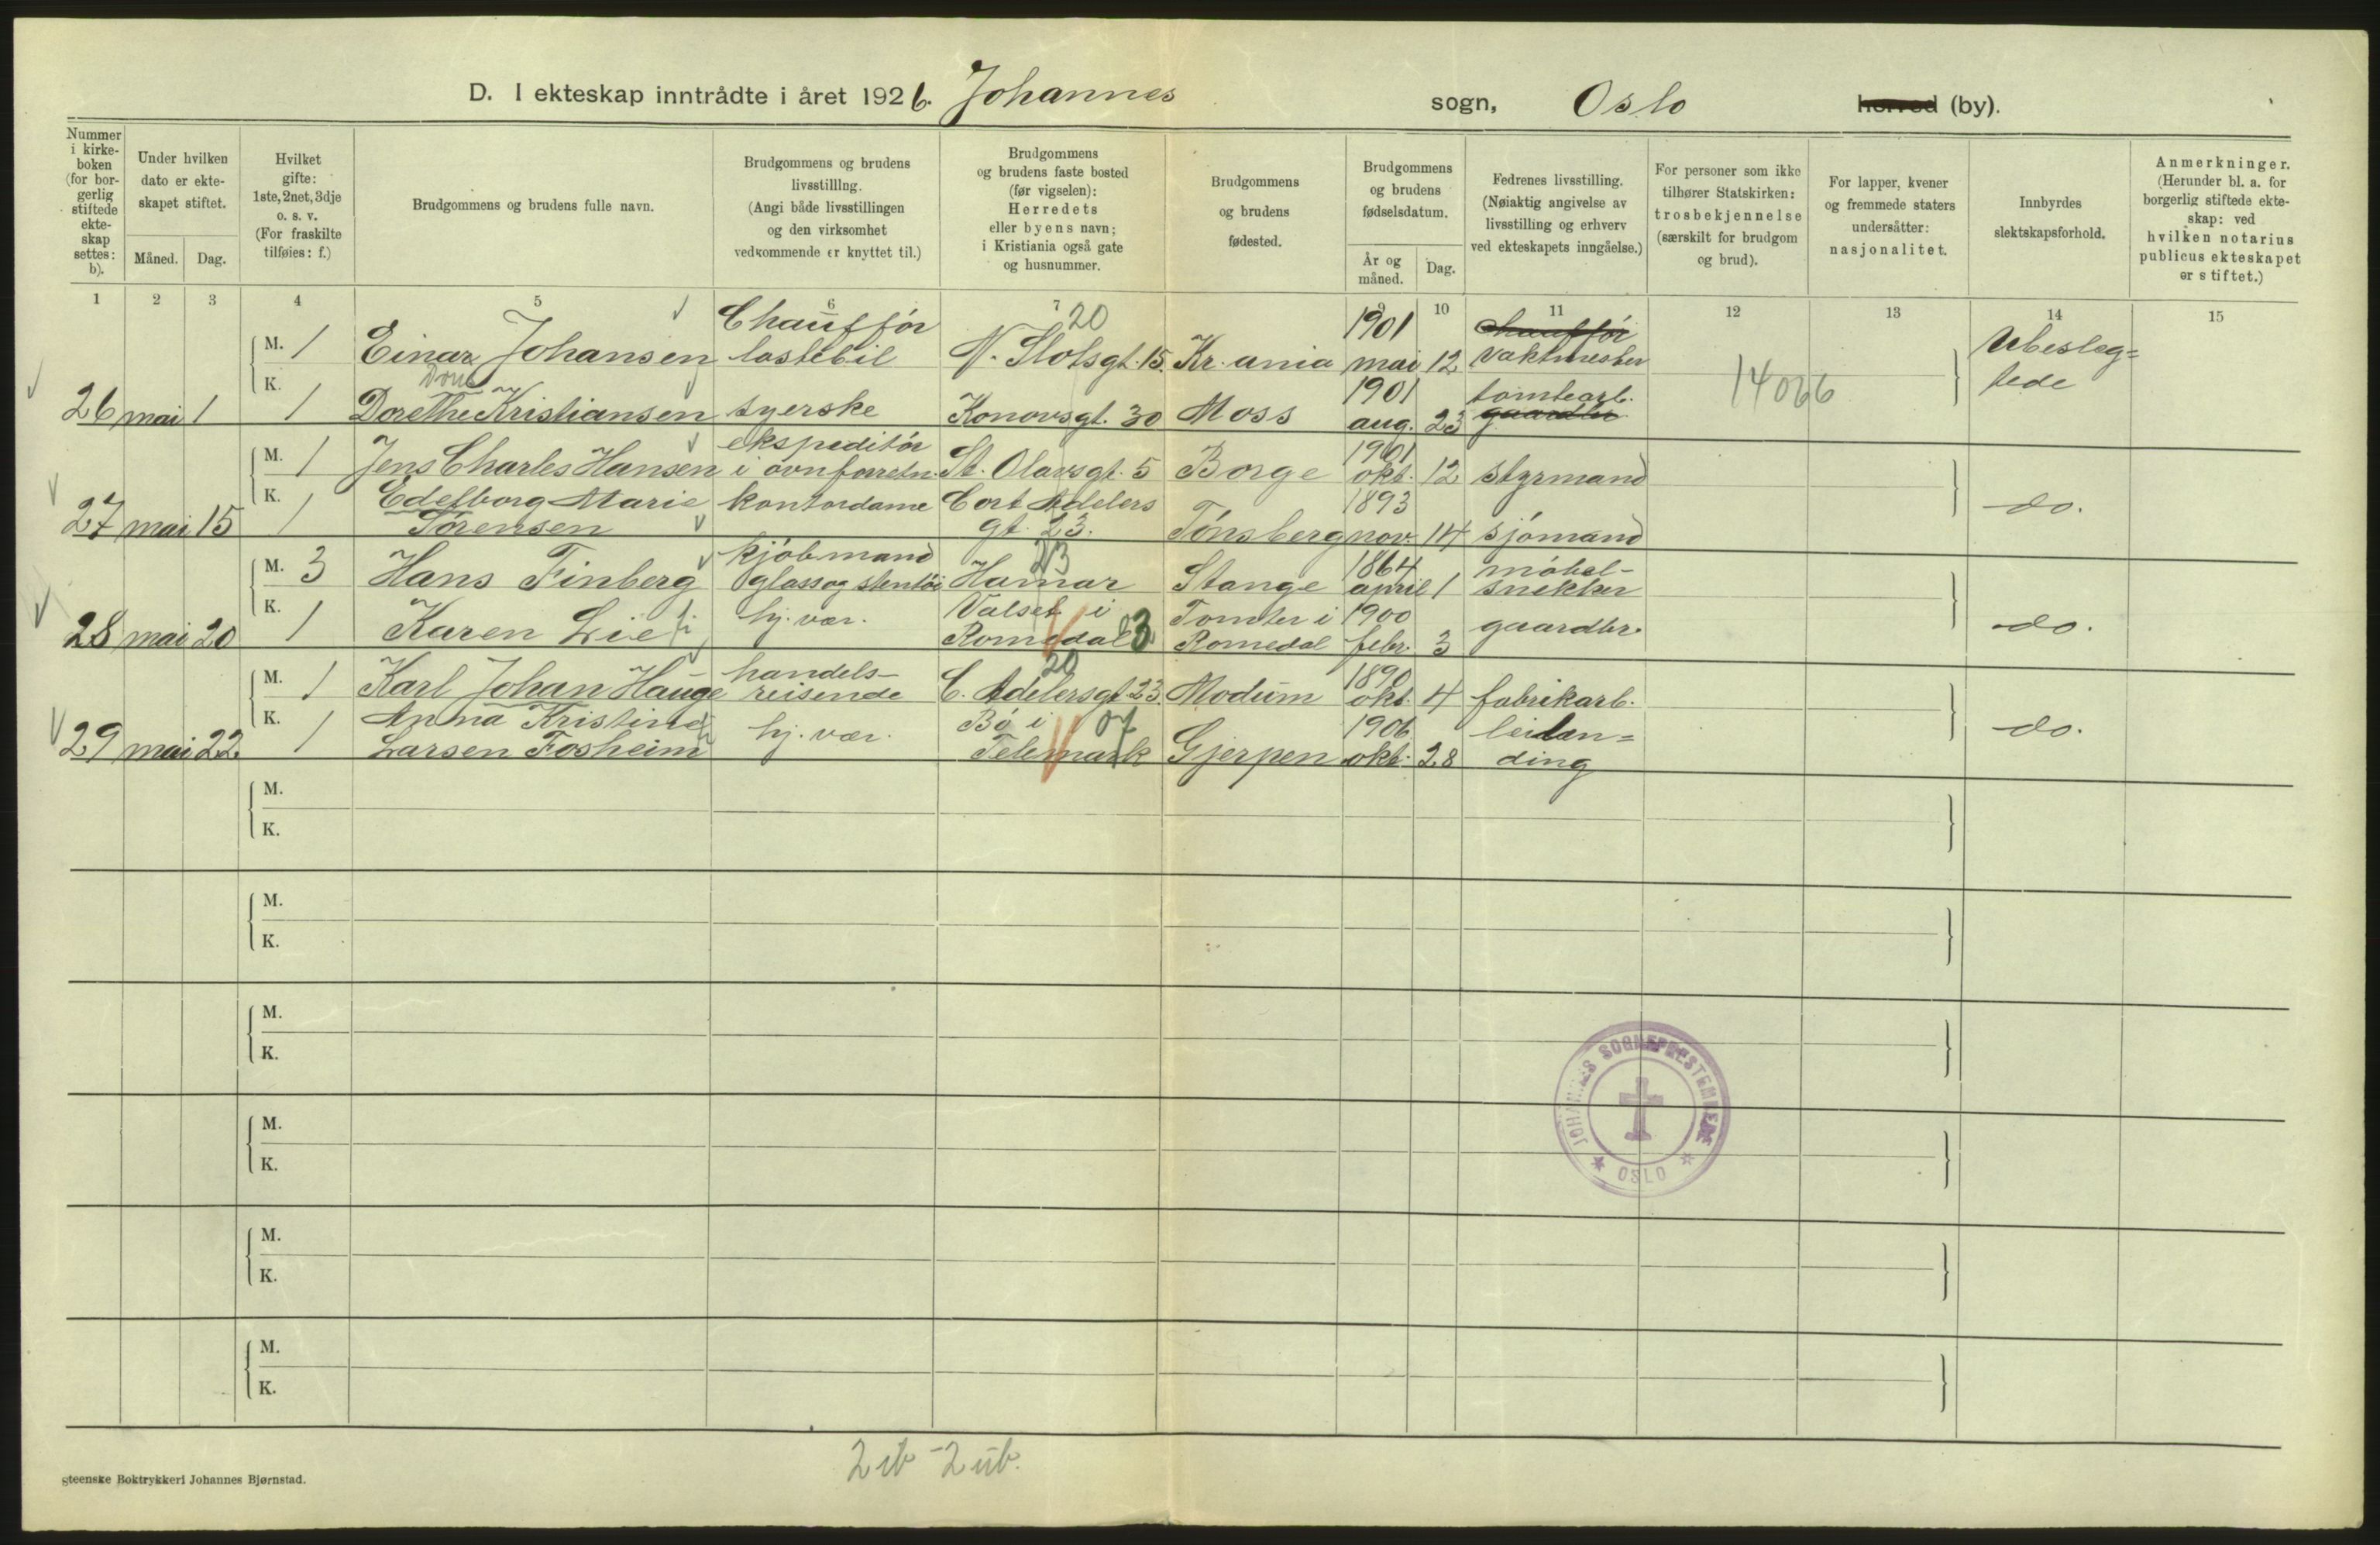 D. I ekteskap inntrådte i året 1926. Johannes sogn, Oslo herred (by).
Nummer i kirke-boken (for bor-gerlig stiftede ekte-skap settes: b).
Under hvilken dato er ekte-skapet stiftet.
Måned. Dag.
Hvilket gifte: 1ste, 2net, 3dje o. s. v. (For fraskilte tilføies: f.)
Brudgommens og brudens fulle navn.
Brudgommens og brudens livsstilling. (Angi både livsstillingen og den virksomhet vedkommende er knyttet til.)
Brudgommens og brudens faste bosted (før vigselen): Herredets eller byens navn; i Kristiania også gate og husnummer.
Brudgommens og brudens fødested.
Brudgommens og brudens fødselsdatum.
År og måned. Dag.
Fedrenes livsstilling. (Nøiaktig angivelse av livsstilling og erhverv ved ekteskapets inngåelse.)
For personer som ikke tilhører Statskirken: trosbekjennelse (særskilt for brudgom og brud).
For lapper, kvener og fremmede staters undersåtter: nasjonalitet.
Innbyrdes slektskapsforhold.
Anmerkninger. (Herunder bl. a. for borgerlig stiftede ekte-skap: ved hvilken notarius publicus ekteskapet er stiftet.)
1 2 3 4 5 6 7 9 10 11 12 13 14 15
M. 1 Einar Johansen Chauffør lastebil 20 N. Slotsgt. 15. Kr.ania 1901 mai 12 chauffør vaktmester Ubesleg=
tede
26 mai 1 K. 1 Dorethe Kristiansen syerske Konowsgt. 30 Moss 1901 aug. 23 tomtearb. gaardbr. 14066
M. 1 Jens Charles Hansen ekspeditør i ovnforretn. St. Olavsgt. 5 Borge 1901 okt. 12 styrmand
27 mai 15 K. 1 Edelborg Marie Sørensen kontordame Cort Adelers gt. 23. Tønsberg 1893 nov. 14 sjømand do.
M. 3 Hans Finberg kjøbmand glass og stentøi Hamar Stange 1864 april 1 møbel-
snekker
28 mai 20 K. 1 Karen Lie hj. vær. Valset i Romedal 3 Tomter i Romedal 1900 febr. 3 gaardbr. do.
M. 1 Karl Johan Hauge handels-
reisende 20 C. Adelersgt. 23. Modum 1890 okt. 4 fabrikarb.
29 mai 22. K. 1 Anna Kristine Larsen Fosheim hj. vær. Bø i Telemark 07 Gjerpen 1906 okt. 28 leilen=
ding do.
M.
K.
M.
K.
M.
K.
M.
K.
M.
K.
M.
K.
JOHANNES SOGNEPRESTEMBEDE
OSLO
2 ib - 2 üb.
gteenske Boktrykkeri Johannes Bjørnstad.